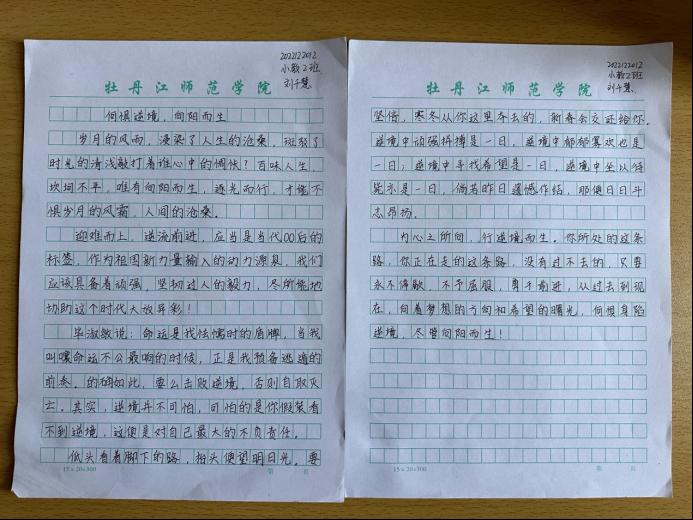 2022122012
小教2班
刘千慧
牡丹江师范学院
何惧逆境，向阳而生
岁月的风雨，浸染了人生的沧桑，斑驳了
时光的清浅敲打着谁心中的惆怅？百味人生，
坎坷不平，唯有向阳而生，逐光而行，才能不
惧岁月的风霜，人间的沧桑。
迎难而上，逆流前进，应当是当代00后的
标签，作为祖国新力量输入的动力源泉，我们
应该具备着顽强，坚韧过人的毅力，尽所能地
协助这个时代大放异彩！
毕淑敏说：命运是我怯懦时的盾牌，当我
叫嚷命运不公最响的时候，正是我预备逃遁的
前奏。的确如此，要么击败逆境，否则自取灭
亡。其实，逆境并不可怕，可怕的是你假装看
不到逆境，这便是对自己最大的不负责任。
低头看着脚下的路，抬头便望明日光。要
15×20=300
第 页
2022122012
小教2班
刘千慧
牡丹江师范学院
坚信，寒冬从你这里夺去的，新春会交还给你。
逆境中顽强拼搏是一日，逆境中郁郁寡欢也是
一日；逆境中寻找希望是一日，逆境中坐以待
毙亦是一日，倘若昨日遗憾作结，那便日日斗
志昂扬。
内心之所向，行逆境而生。你所处的这条
路，你正在走的这条路，没有过不去的，只要
永不停歇，不予屈服，勇于前进，从过去到现
在，向着梦想的方向和希望的曙光，何惧身陷
逆境，尽管向阳而生！
15×20=300
第 页